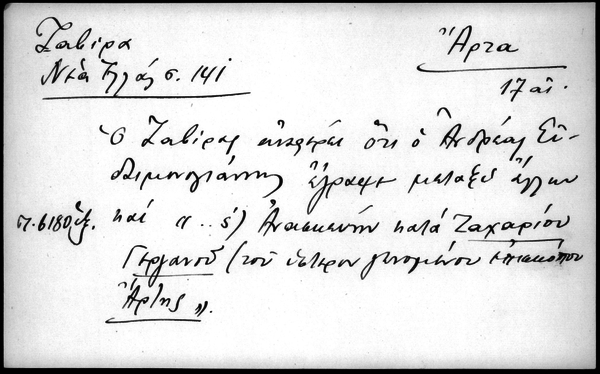 Ζαβίρα
Νέα Ἑλλάς σ. 141
Ἄρτα
17 αἰ.
Ὁ Ζαβίρας ἀναφέρει ὅτι ὁ Ἀνδρέας Εὐ-
δαιμονογιάννης ἔγραψε μεταξὺ ἄλλων
καί "..ς) Ἀνασκευήν κατά Ζαχαρίου
Γεργανοῦ (τοῦ ὕστερον γενομένου ἐπισκόπου
Ἄρτης".